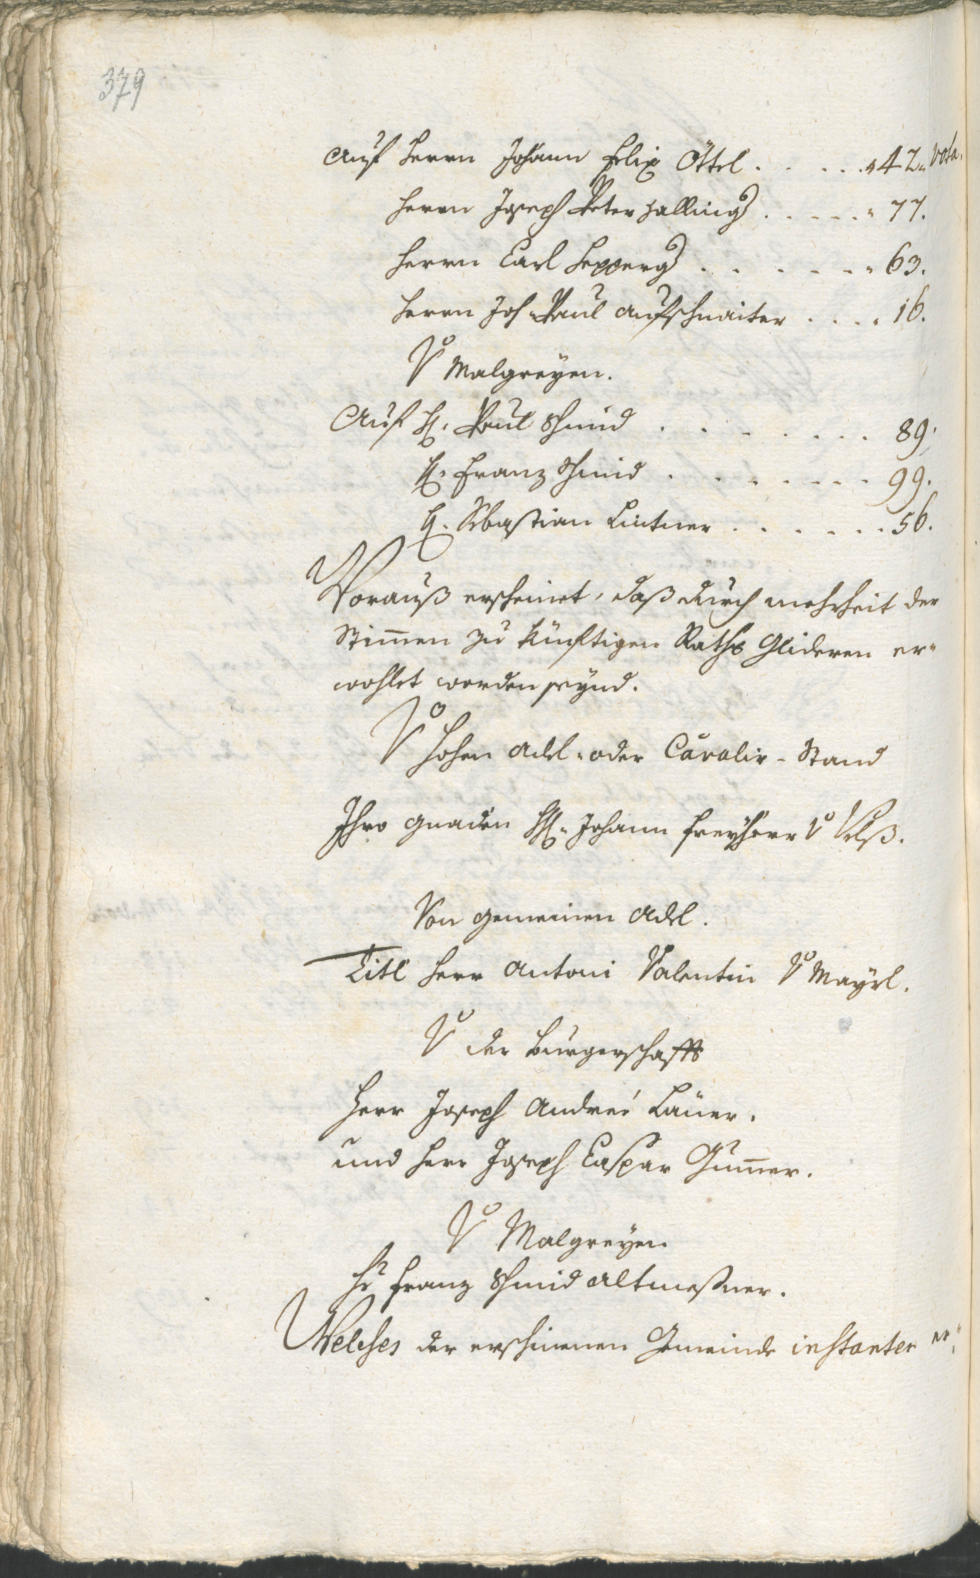 379
Auf Herrn Johann Felix Öttel . . . . . " 42 " vota.
Herrn Joseph Peter Zalling(er) . . . . . " 77.
Herrn Carl Hepperg(er) . . . . . . " 63.
Herrn Jos. Paul Aufschnaiter . . . . " 16.
V° Malgreyen.
Auf H. Paul Schmid . . . . . . . . 89.
H. Franz Schmid . . . . . . . . 99.
H. Sebastian Lintner . . . . . . 56.
Worauß erscheinet, daß durch mehrheit der
Stimen zu künftigen Raths Glideren er-
wohlet worden seynd.
V° Hohen Adl- oder Cavalir-Stand
Ihro Gnaden H. Johann Freyherr V° Velß.
Von gemeinen Adl.
Titl Herr Antoni Valentin V° Mayrl.
V° der Burgerschafft
Herr Joseph Andreé Laner.
und Herr Joseph Caspar Gumer.
V° Malgreyen
Hr Franz Schmid Altmeßner.
Welches der erschinenen Gemeinde instanter er-